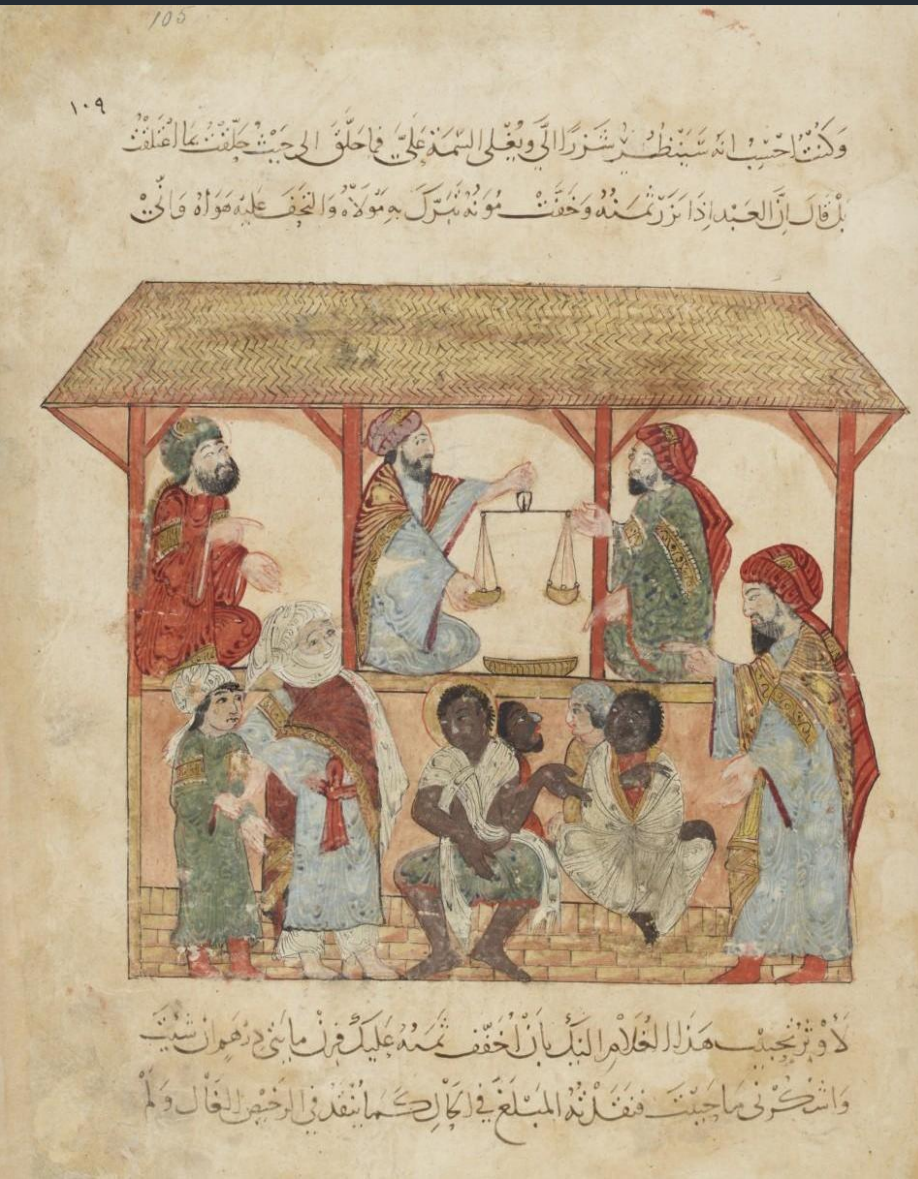 105
١٠٩
وَكُنْتُ احْسِبُ انَّه سَيَنْظُرُ شَزَرًا الىَّ ويُغْلى السِّمَةَ عَلَىَّ فما حَلَّقَ الى حَيْثُ حَلَّقْتُ بما اعْتَلَقْتُ
بَلْ قَالَ اِنَّ العَبْدَ اِذَا نَزَرَ ثَمَنُهُ وَخَفَّتْ مُوَنُهُ تَبَرَّكَ بِهِ مَوْلَاهُ وَالتَحَفَ عَلَيْهِ هَوَاهُ وَاِنّى
لَأُوثِرُ تَحْبِيْبَ هَذَا الغُلَامِ اِليْكَ بِاَنْ اُخَفِّفَ ثَمَنَهُ عَلَيْكَ فَزِنْ مايتى دِرْهَم ان شِئْتَ
وَاشْكُرْنى مَا حَيِيْتَ فَنَقَدْتُهُ المَبْلَغَ فى الحَالِ كَمَا يُنْقَدُ فى الرَّخِيْصِ الغَال وَلَمْ